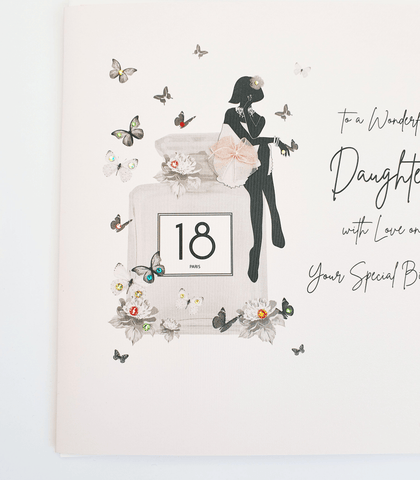 18
PARIS
to a Wonderf
Daughte
with Love on
Your Special B